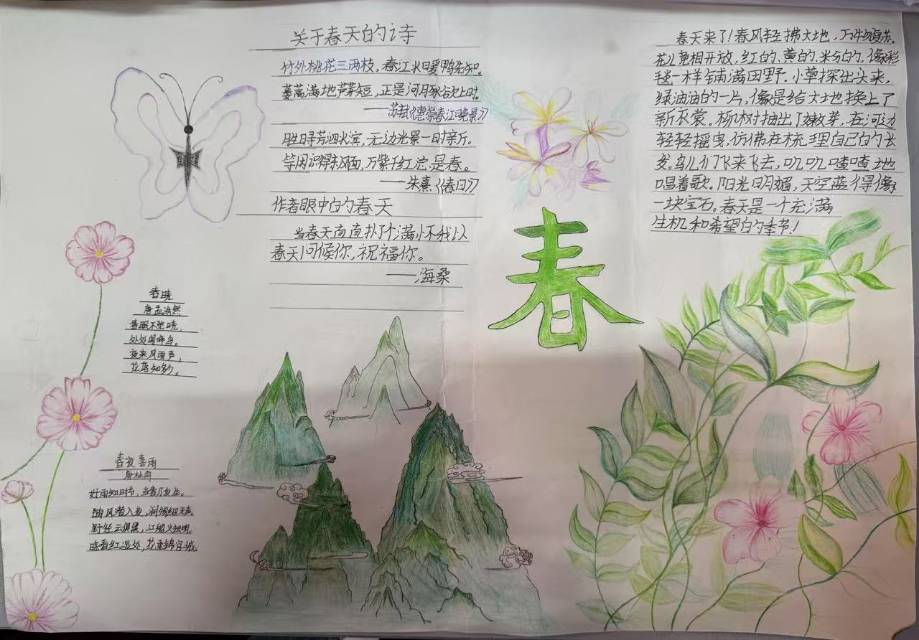 关于春天的诗
竹外桃花三两枝，春江水暖鸭先知。
蒌蒿满地芦芽短，正是河豚欲上时。
——苏轼《惠崇春江晚景》
胜日寻芳泗水滨，无边光景一时新。
等闲识得东风面，万紫千红总是春。
——朱熹《春日》
作者眼中的春天
当春天直直扑个满怀我以
春天问候你，祝福你。
——海桑
春晓
唐孟浩然
春眠不觉晓，
处处闻啼鸟。
夜来风雨声，
花落知多少。
春夜喜雨
唐杜甫
好雨知时节，当春乃发生。
随风潜入夜，润物细无声。
野径云俱黑，江船火独明。
晓看红湿处，花重锦官城。
春
春天来了！春风轻拂大地，万物复苏。
花儿竞相开放，红的、黄的、粉的，像彩
毯一样铺满田野。小草探出头来，
绿油油的一片，像是给大地换上了
新衣裳。柳树抽出了嫩芽，在河边
轻轻摇曳，仿佛在梳理自己的长
发。鸟儿们飞来飞去，叽叽喳喳地
唱着歌。阳光明媚，天空蓝得像
一块宝石，春天是一个充满
生机和希望的季节！